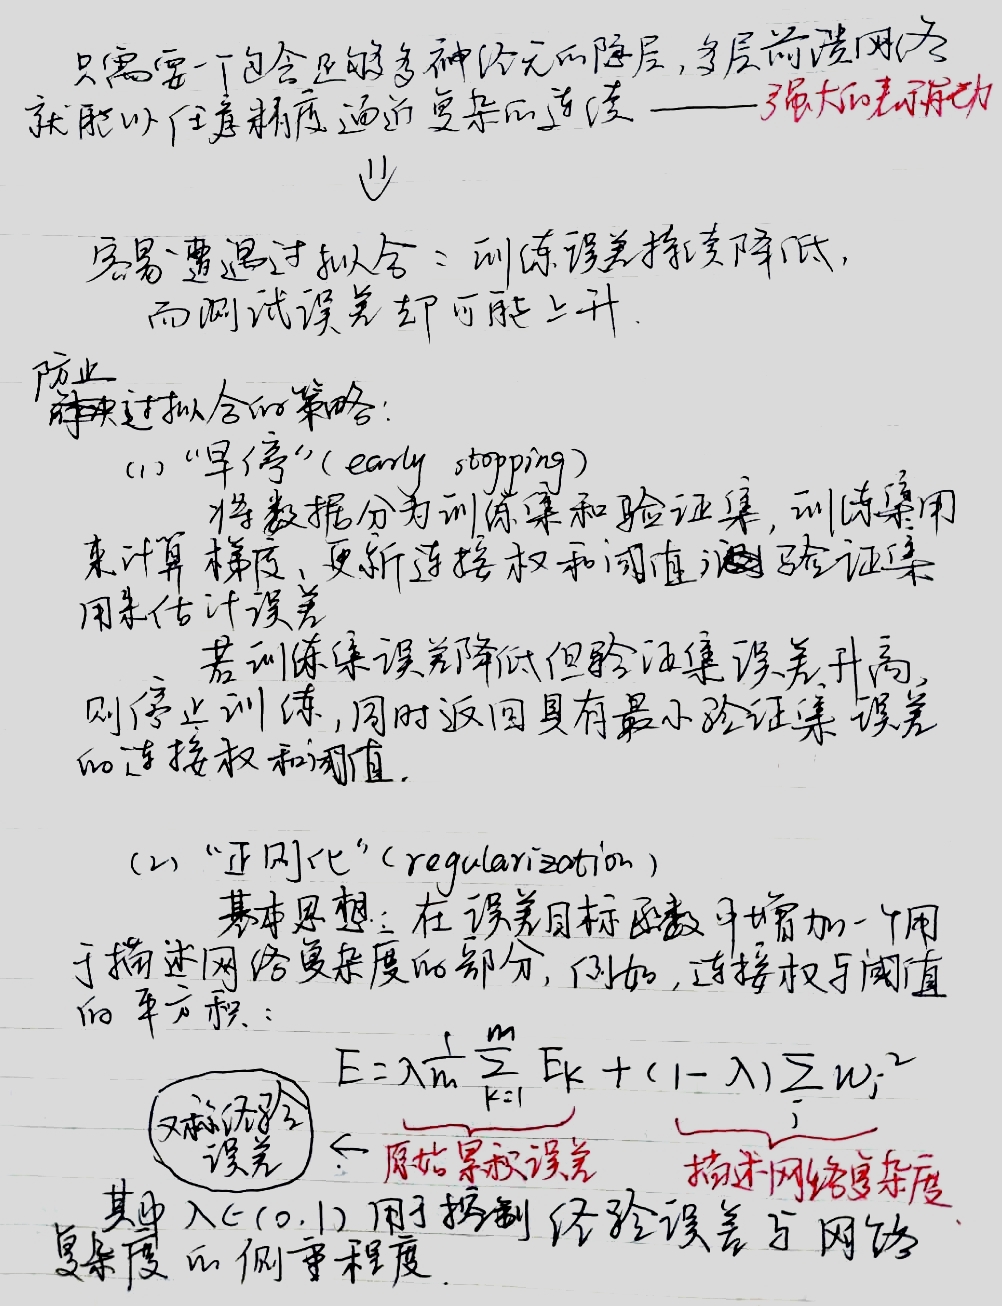 只需要一个包含足够多神经元的隐层,多层前馈网络
就能以任意精度逼近复杂的连续——强大的表示能力
⇓
容易遭遇过拟合:训练误差持续降低,
而测试误差却可能上升.
防止
解决过拟合的策略:
(1)“早停”(early stopping)
将数据分为训练集和验证集,训练集用
来计算梯度、更新连接权和阈值,验证集
用来估计误差
若训练集误差降低但验证集误差升高,
则停止训练,同时返回具有最小验证集误差
的连接权和阈值.
(2)“正则化”(regularization)
基本思想:在误差目标函数中增加一个用
于描述网络复杂度的部分,例如,连接权与阈值
的平方积:
E=λ\frac{1}{m}\sum_{k=1}^{m}E_k+(1-λ)\sum_i w_i^2
又称经验
误差
← 原始累积误差 描述网络复杂度.
其中λ∈(0.1)用于控制经验误差与网络
复杂度的侧重程度.